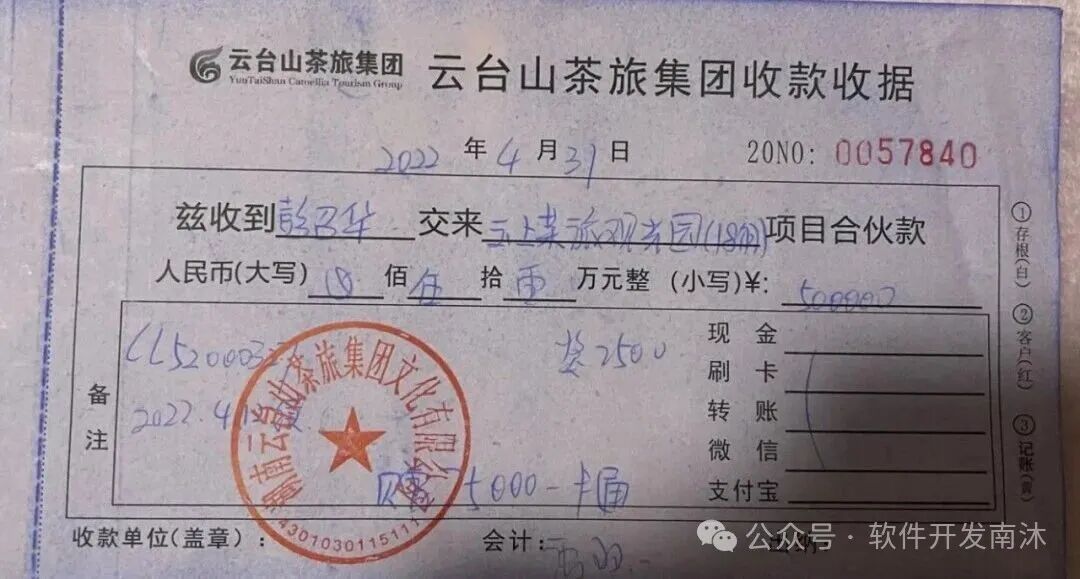 云台山茶旅集团 云台山茶旅集团收款收据
YunTaiShan Camellia Tourism Group
2022 年 4 月 31 日 20NO: 0057840
兹收到 彭召华 交来 云上茶旅观光园(18期) 项目合伙款
人民币(大写) 佰 伍 拾 零 万元整 (小写)¥: 500000
备注
CL520003
奖2500
2022.4.1
5000
湖南云台山茶旅集团文化有限公司
43010301151111
现金
刷卡
转账
微信
支付宝
①存根(白) ②客户(红) ③记账(黄)
收款单位(盖章): 会计:
公众号·软件开发南沐